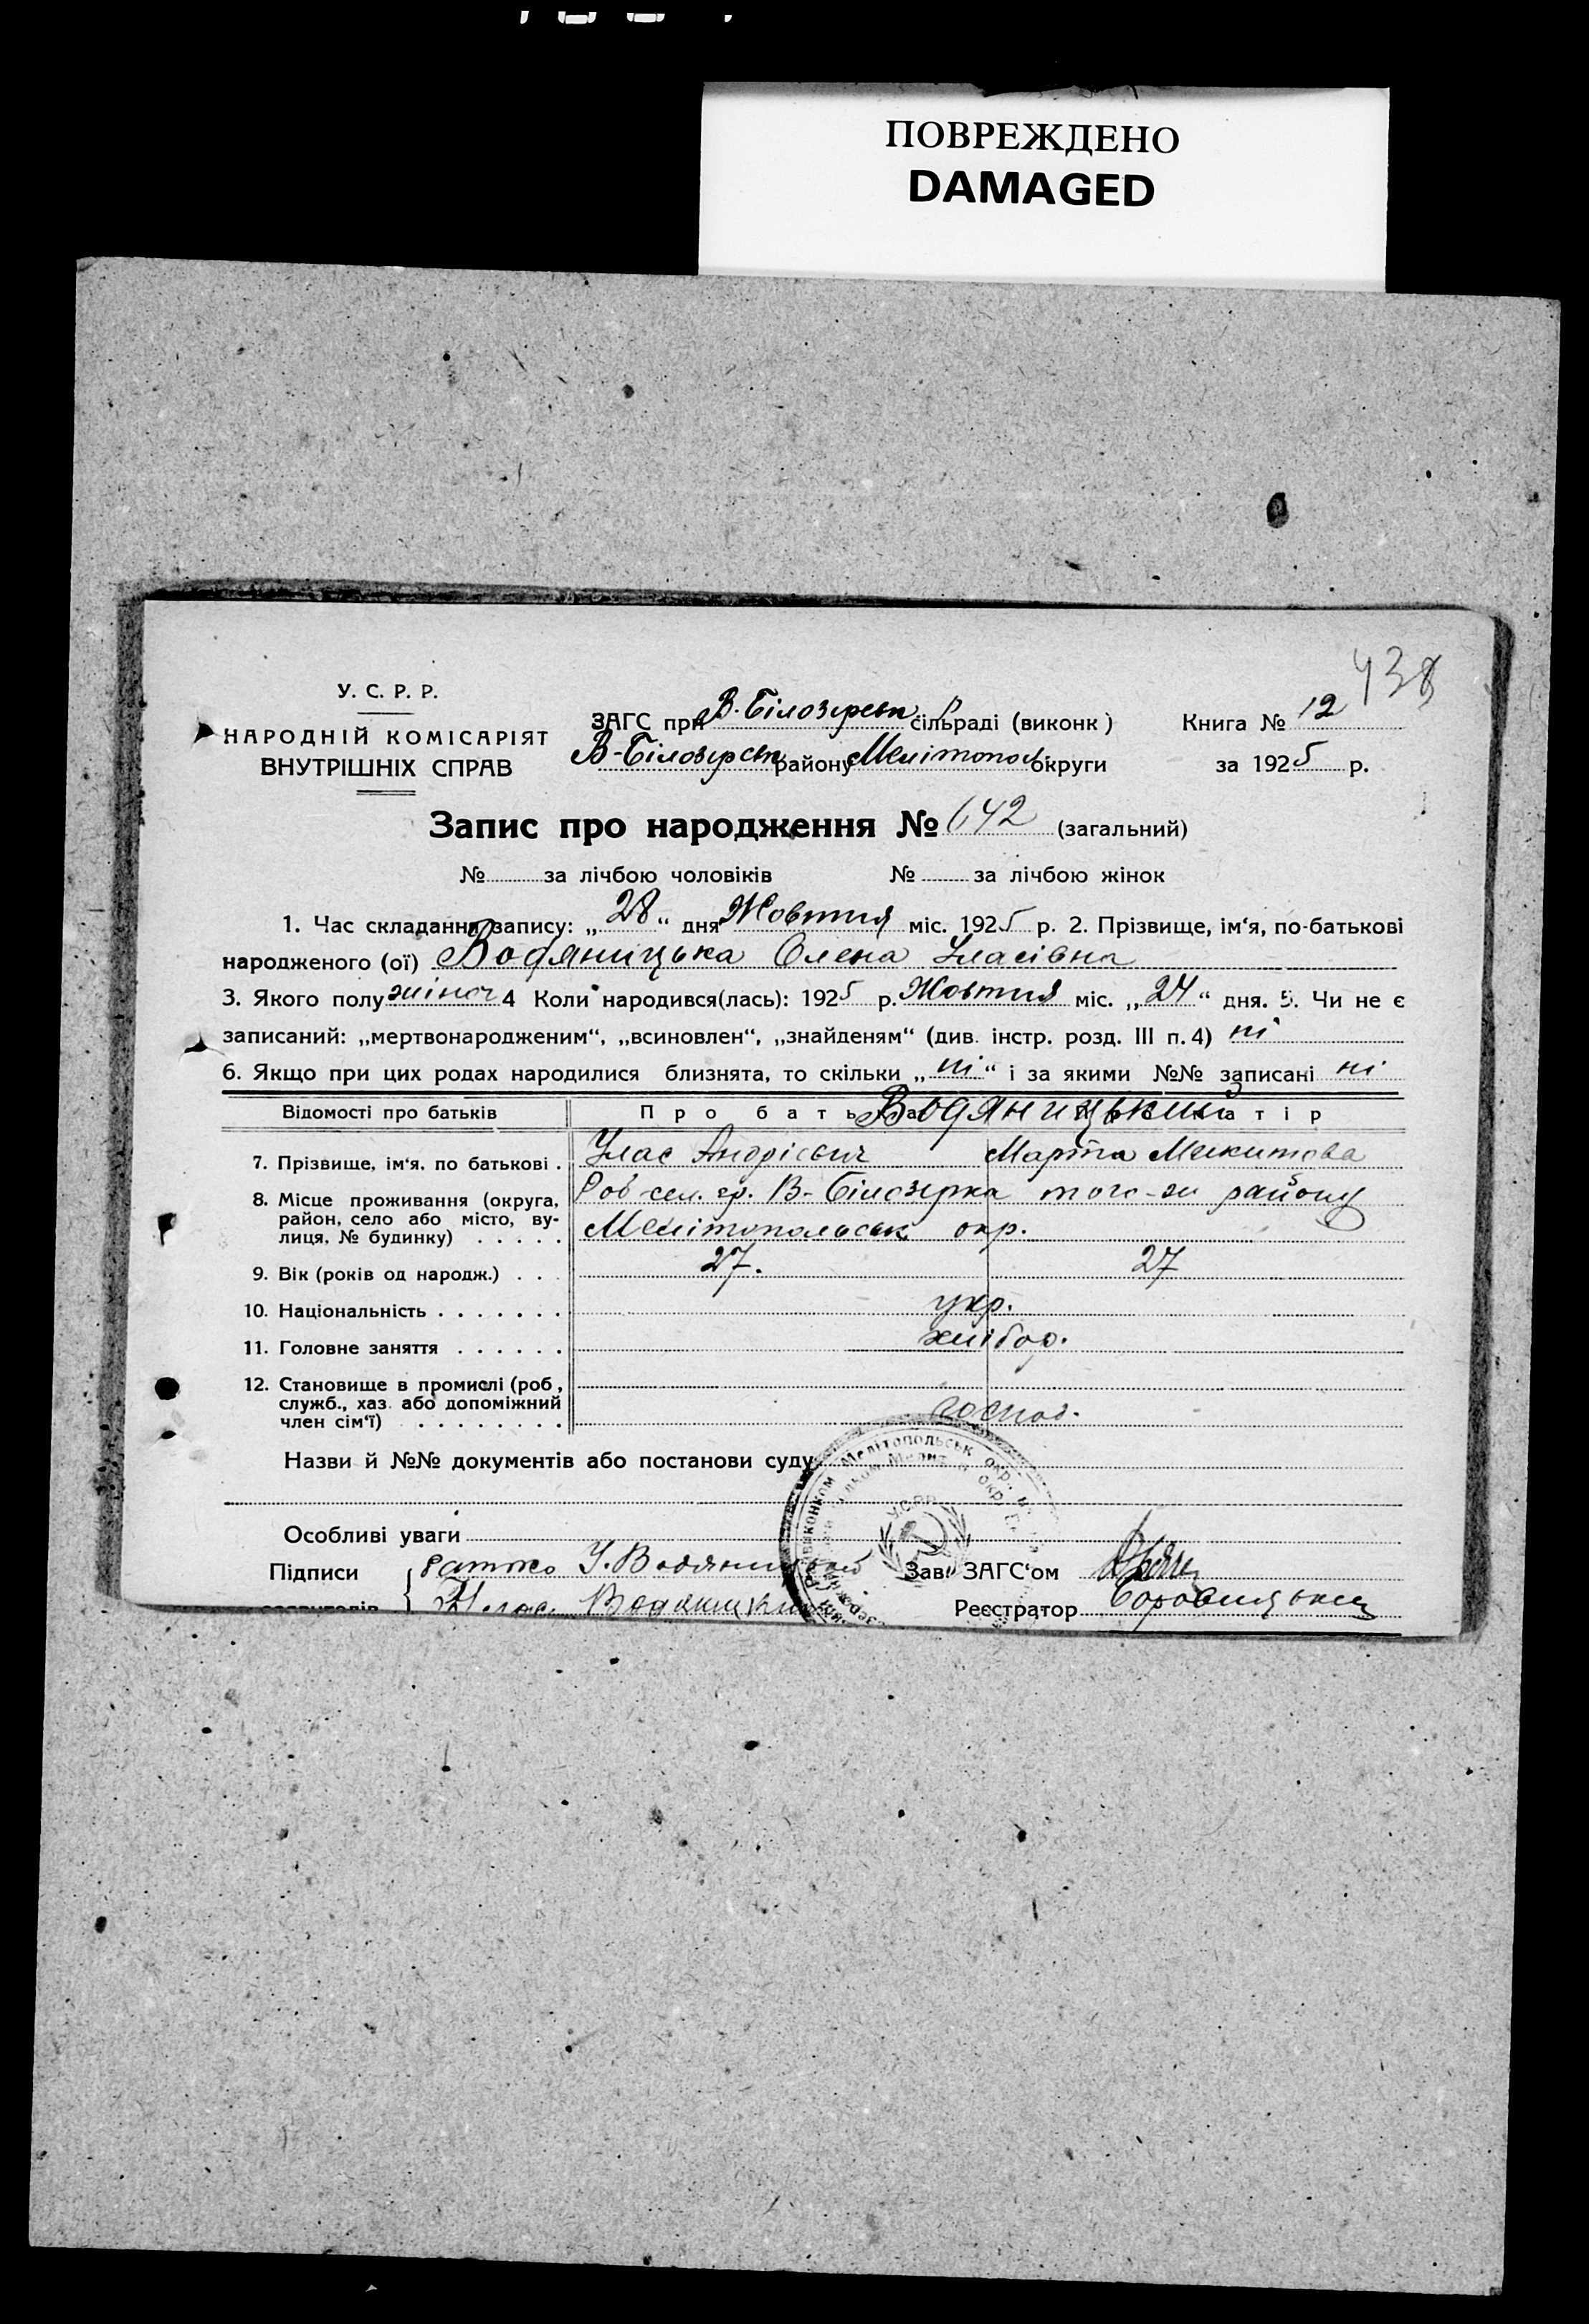 ПОВРЕЖДЕНО
DAMAGED
438
У. С. Р. Р.
НАРОДНІЙ КОМІСАРІЯТ
ВНУТРІШНІХ СПРАВ
ЗАГС при В-Білозірськ. сільраді (виконк)
Книга № 12
В-Білозірськ району Мелітополь. округи
за 1925 р.
Запис про народження № 642 (загальний)
№ за лічбою чоловіків № за лічбою жінок
1. Час складання запису: „28“ дня Жовтня міс. 1925 р. 2. Прізвище, ім‘я, по-батькові
народженого (ої) Водяницька Олена Уласівна
3. Якого полу жіноч 4 Коли народився(лась): 1925 р. Жовтня міс. „24“ дня. 5. Чи не є
записаний: „мертвонародженим“, „всиновлен“, „знайденям“ (див. інстр. розд. III п. 4) ні
6. Якщо при цих родах народилися близнята, то скільки „ні“ і за якими №№ записані ні
Відомості про батьків
Про батька
матір
Водяницький
7. Прізвище, ім‘я, по батькові . Улас Андрієвич Марта Микитова
8. Місце проживання (округа,
район, село або місто, ву-
лиця, № будинку) . . . . .
сел. гр. В-Білозірка того-ж району
Мелітопольськ окр.
9. Вік (років од народж.) . . . 27. 27
10. Національність . . . . . . . укр.
11. Головне заняття . . . . . . хлібор.
12. Становище в промислі (роб,
служб., хаз. або допоміжний
член сім‘ї) . . . . . . . .
господ.
Назви й №№ документів або постанови суду
Мелітопольськ окр.
У.С.Р.Р.
Особливі уваги
Підписи батько У. Водяницький
Улас Водяницкий
Зав. ЗАГС‘ом
Реєстратор